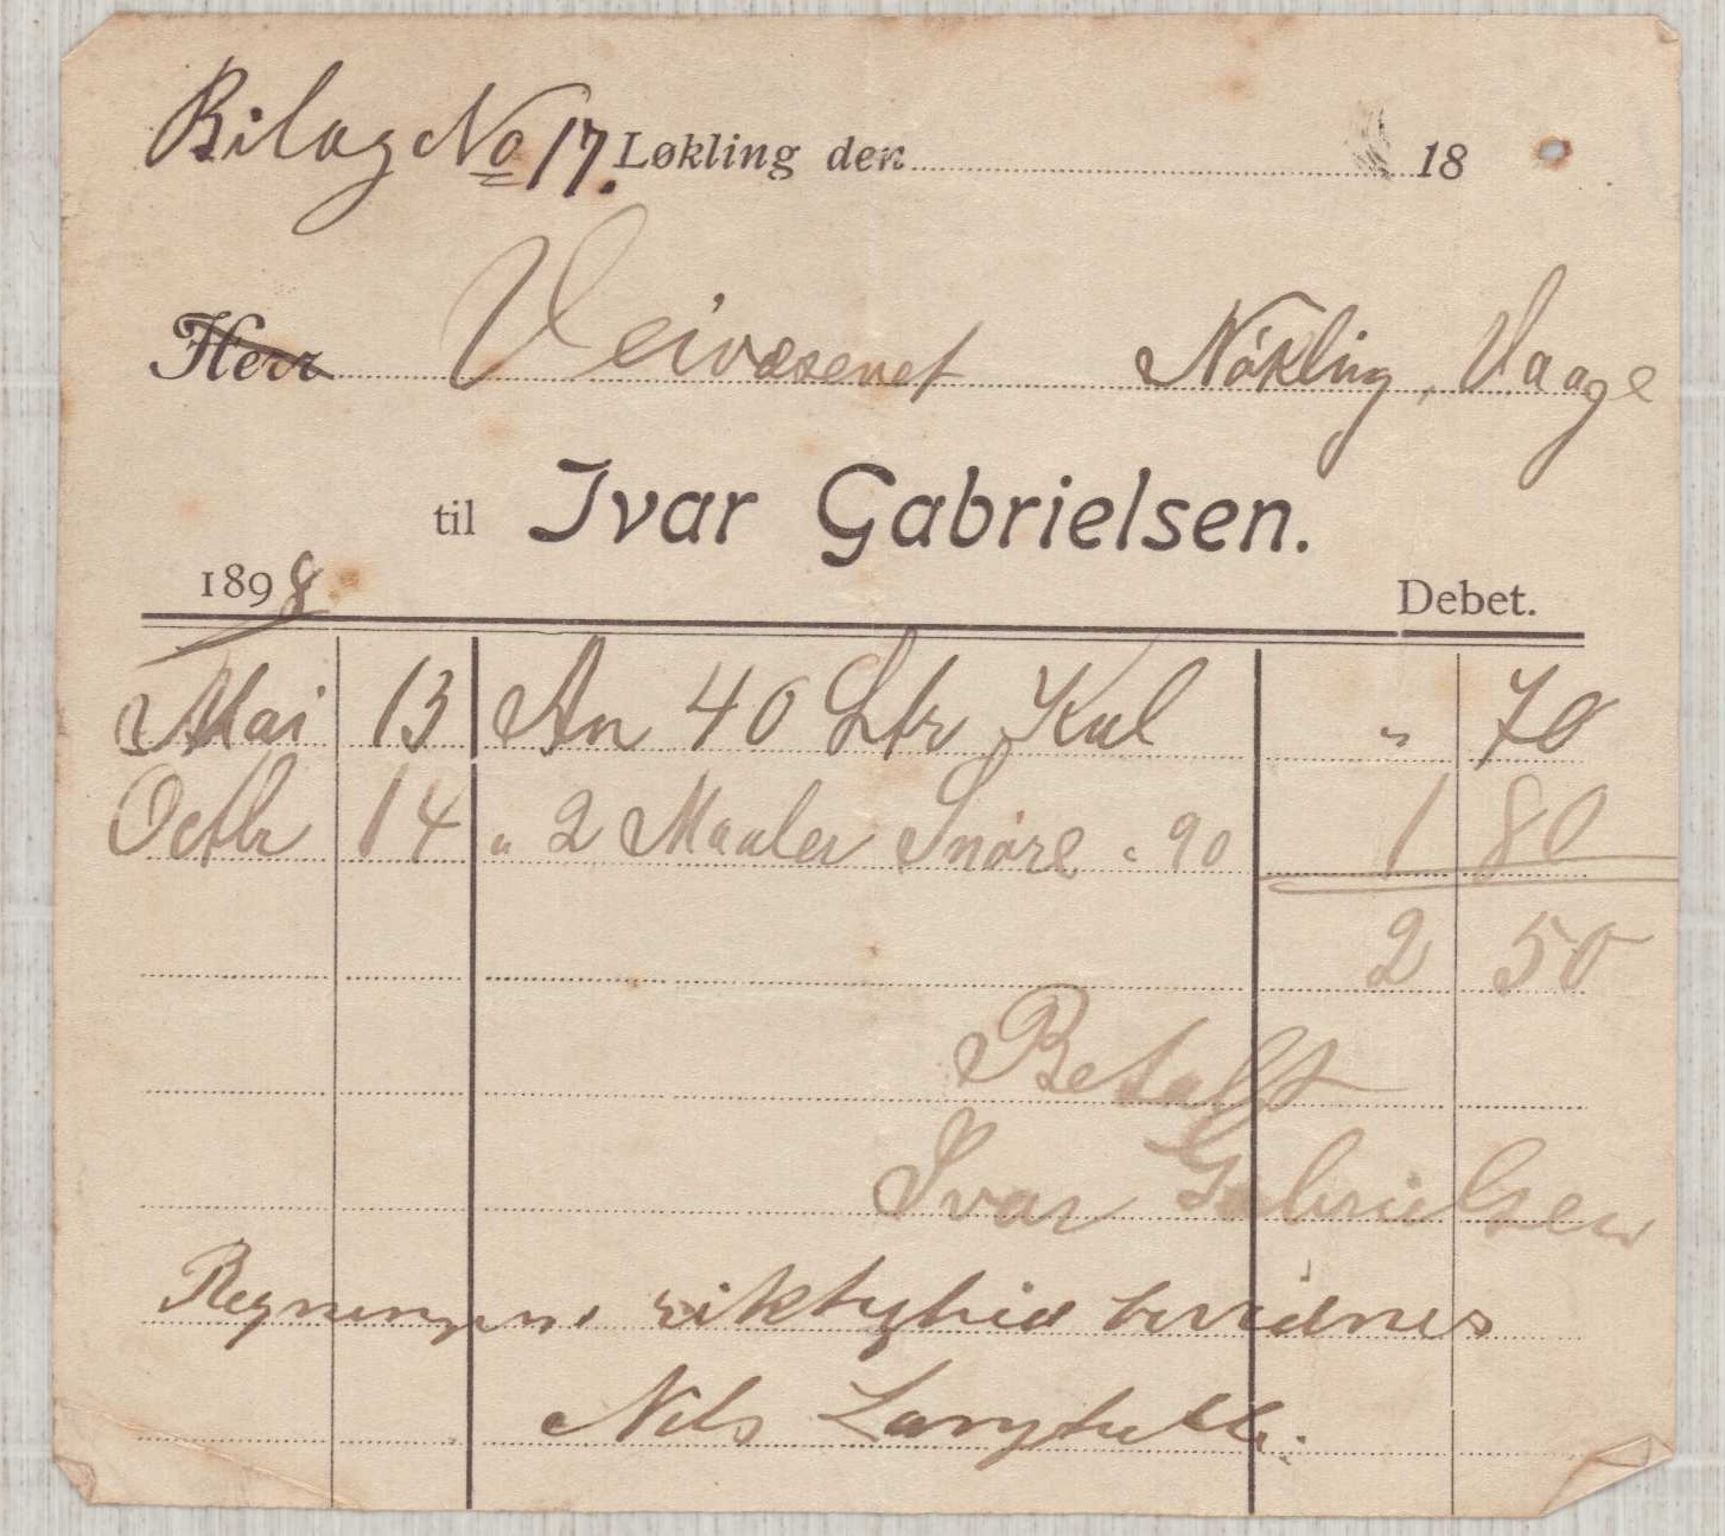 Bilag No 17. Løkling den 18
Herr Veivæsenet Nökling, Vaage
til Ivar Gabrielsen.
1898 Debet.
Mai 13 An 40 Ltr Kul " 70
Octbr 14 " 2 Maaler Snöre " 90 1 80
2 50
Betalt
Ivar Gabrielsen
Regningens riktighed bevidnes
Nils